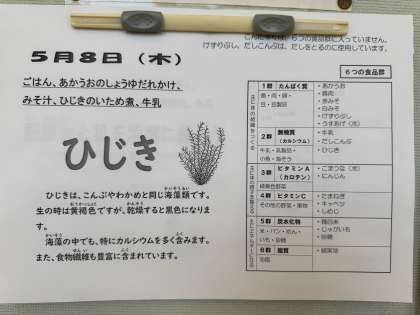 けずりぶし、だしこんぶは、だしをとるのに使用しています。
5月8日（木）
ごはん、あかうおのしょうゆだれかけ、
みそ汁、ひじきのいため煮、牛乳
ひじき
ひじきは、こんぶやわかめと同じ海藻類です。
生の時は黄褐色ですが、乾燥すると黒色になりま
す。
海藻の中でも、特にカルシウムを多く含みます。
また、食物繊維も豊富に含まれています。
6つの食品群
1群 たんぱく質
魚・肉・卵・
豆・豆製品
・あかうお
・豚肉
・赤みそ
・白みそ
・けずりぶし
・うすあげ（冷）
2群 無機質
（カルシウム）
牛乳・乳製品・
小魚・海そう
・牛乳
・だしこんぶ
・ひじき
3群 ビタミンA
（カロテン）
緑黄色野菜
・こまつな（冷）
・にんじん
4群 ビタミンC
その他の野菜・果物
・たまねぎ
・キャベツ
・しめじ
5群 炭水化物
米・パン・めん・
いも・砂糖
・精白米
・じゃがいも
・砂糖
6群 脂質
油脂